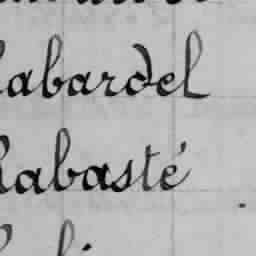 Rabardel
Rabasté